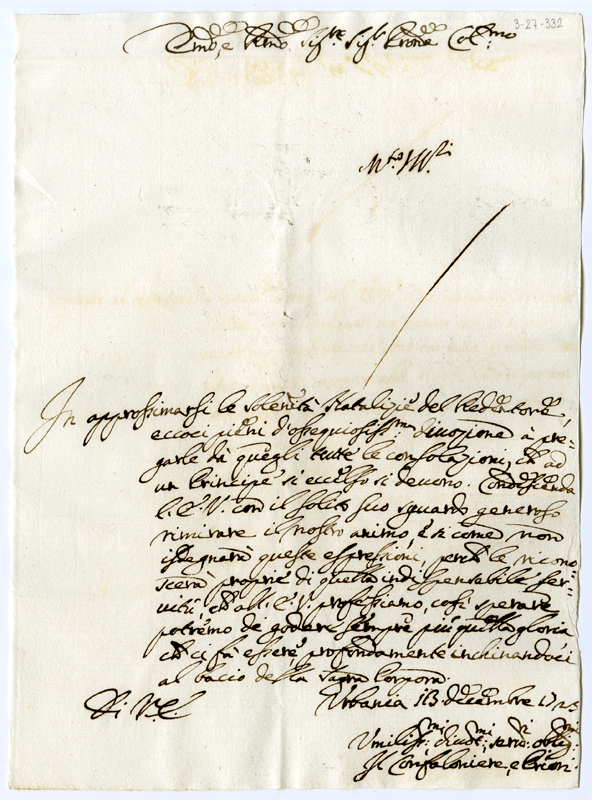 3-27-332
Em̃o, e Rm̃o Sig.re Sig.r Prone Col:mo
In approssimarsi le solenità Natalizie del Redentore,
eccoci pieni d'ossequiosiss:ma divozione à pre=
garle da quegli tutte le consolazioni, ch' ad
un Principe si eccelso si devono. Condiscenda
l'E.V. con il solito suo sguardo generoso
rimirare il nostro animo, e si come non
isdegnarà queste espressioni, perche le ricono=
scerà proprie di quella indispensabile ser=
vitù, ch' all'E.V. professiamo, così sperare
potremo de godere sempre più quella gloria
ch' ci fà essere, profondamente inchinandoci
al baccio della sagra Porpora.
Urbania 13 decembre 1723
Di V.E.
Umiliss:mi divot:mi serv:ri oblig:mi
Il Confaloniere, e Priori